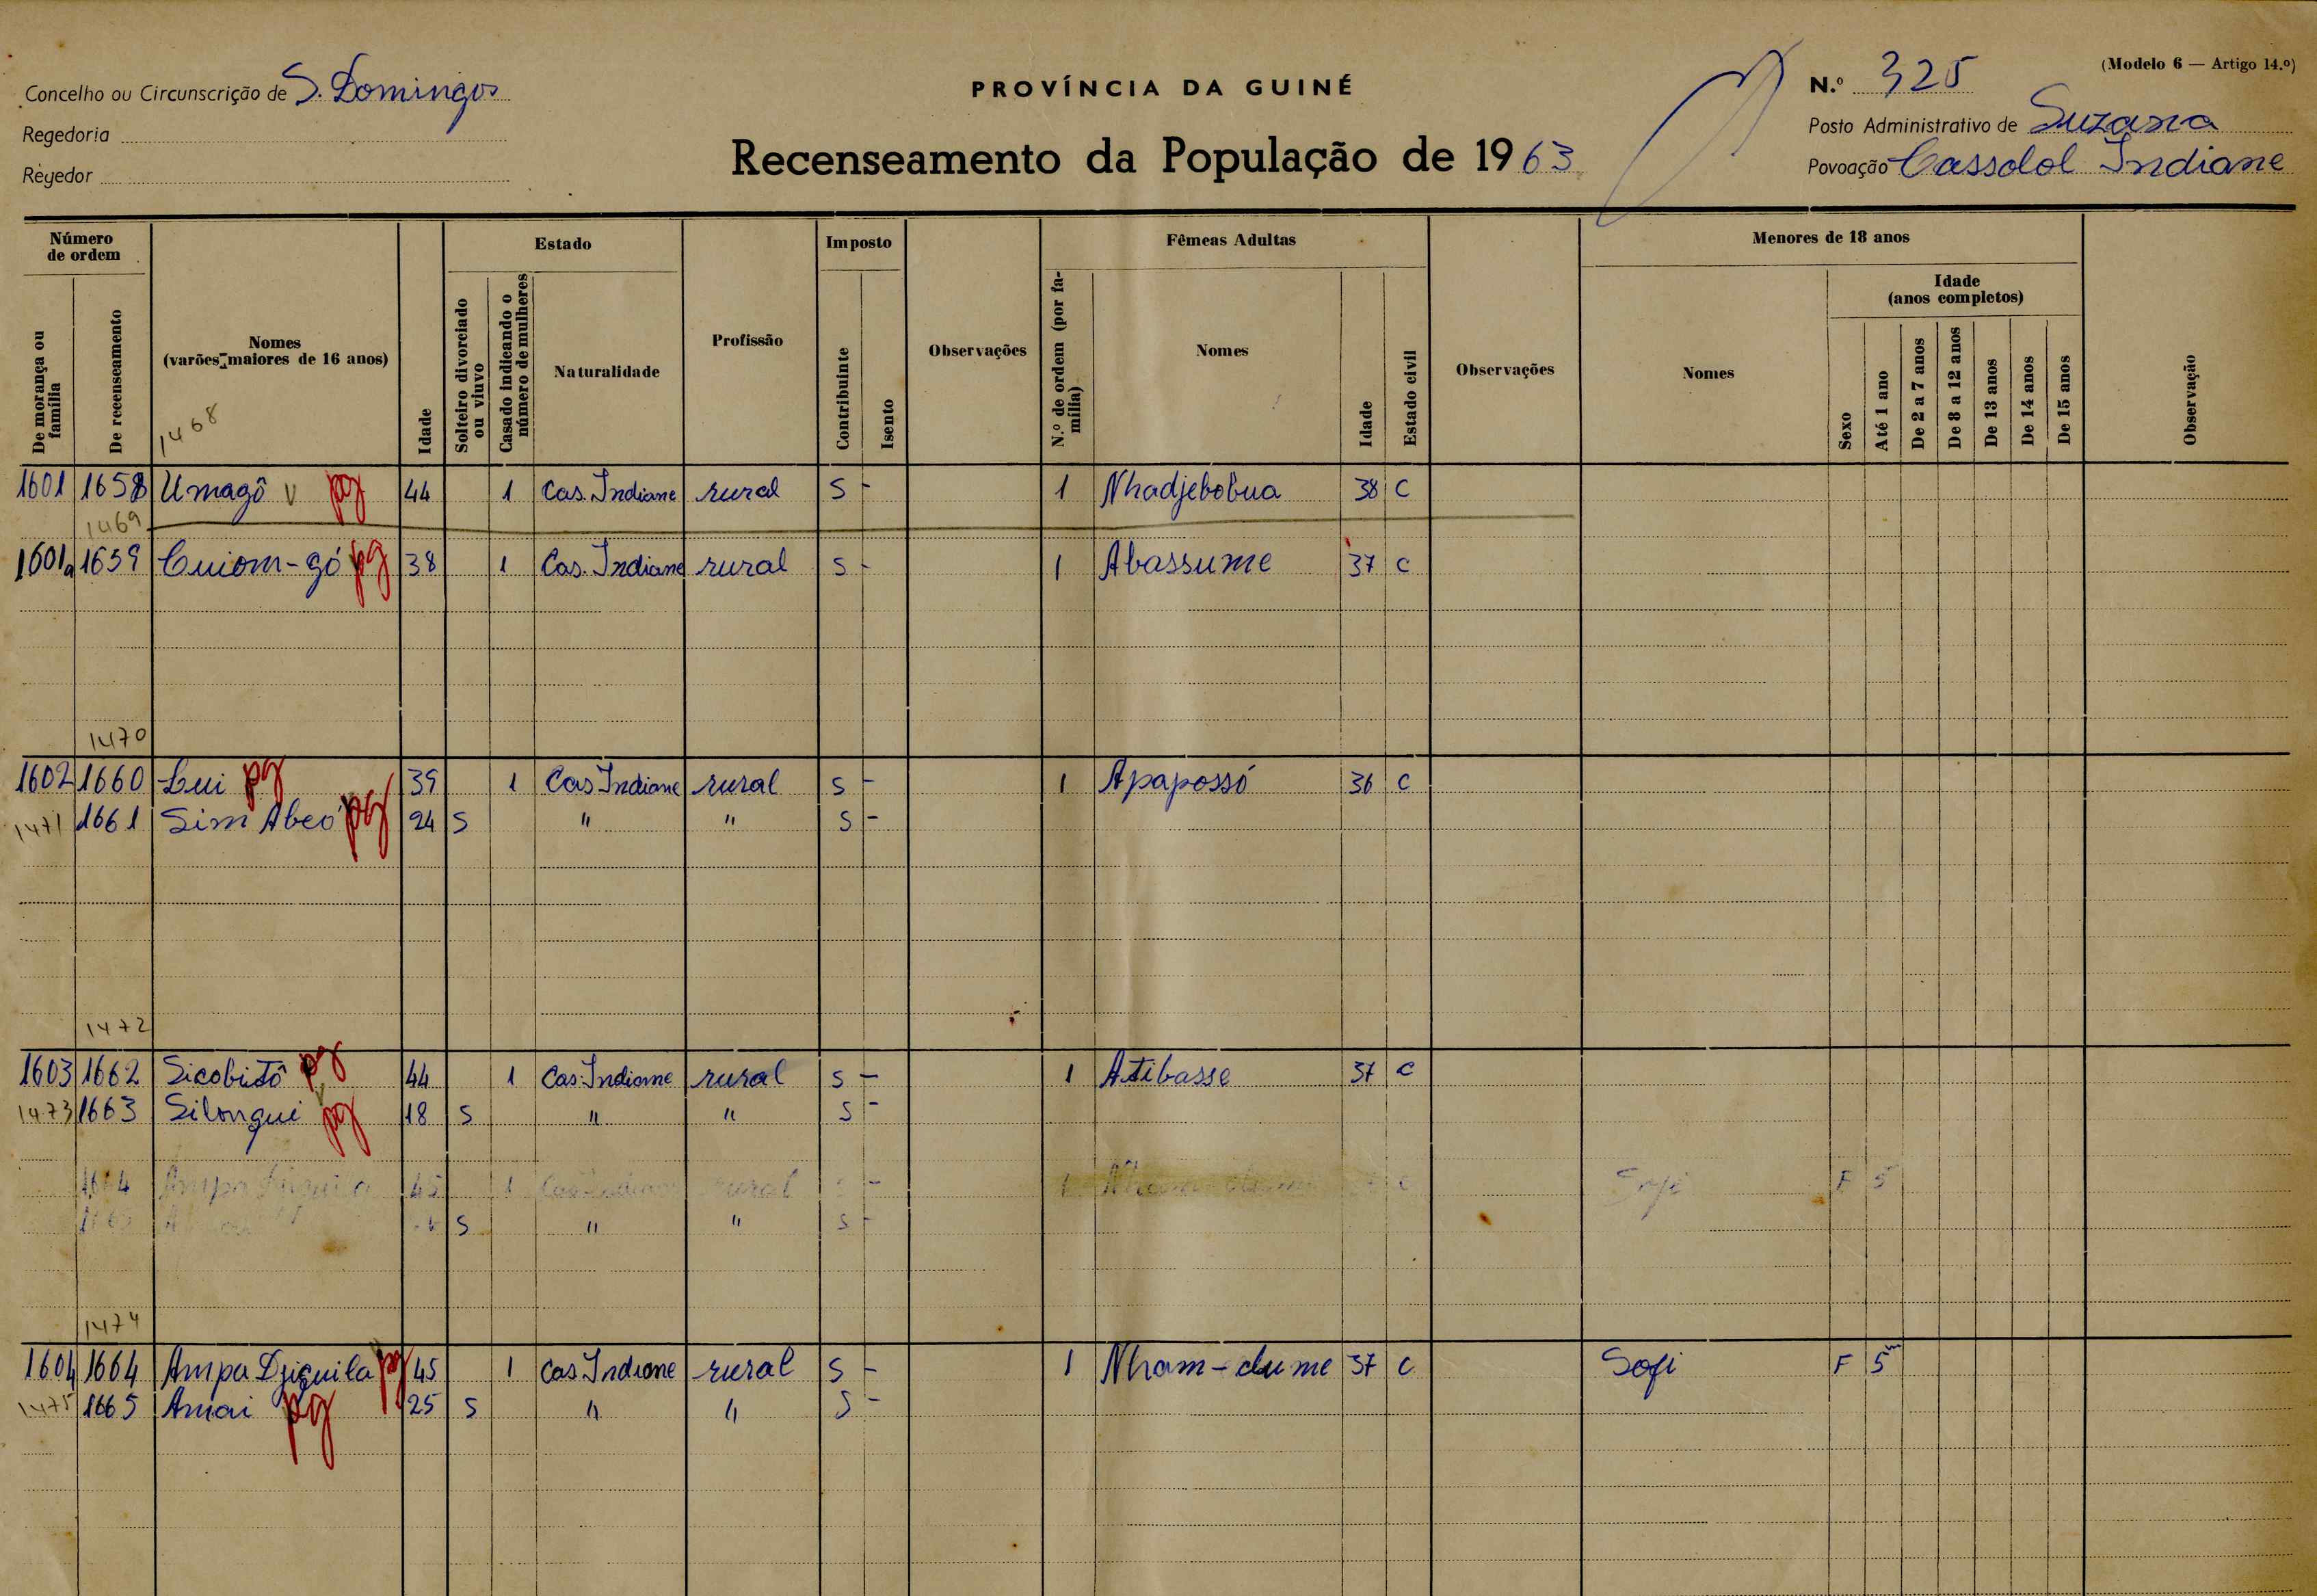 (Modelo 6 — Artigo 14.º)
Concelho ou Circunscrição de S. Domingos
PROVÍNCIA DA GUINÉ
N.º 325
Regedoria
Posto Administrativo de Suzana
Regedor
Recenseamento da População de 1963
Povoação Cassolol Indiane
Número de ordem
Estado
Imposto
Fêmeas Adultas
Menores de 18 anos
De morança ou família
De recenseamento
Nomes (varões maiores de 16 anos)
Idade
Solteiro divorciado ou viuvo
Casado indicando o número de mulheres
Naturalidade
Profissão
Contribuinte
Isento
Observações
N.º de ordem (por família)
Nomes
Idade
Estado civil
Observações
Nomes
Sexo
Idade (anos completos)
Até 1 ano
De 2 a 7 anos
De 8 a 12 anos
De 13 anos
De 14 anos
De 15 anos
Observação
1468
1601 1658 Umagô v pg 44 1 Cas. Indiane rural S - 1 Nhadjebobua 38 C
1469
1601a 1659 Cuiom-gó pg 38 1 Cas. Indiane rural S - 1 Abassume 37 C
1470
1602 1660 Lui pg 39 1 Cas Indiane rural S - 1 Apapossó 36 C
1471 1661 Sim Abeo pg 24 S " " S -
1472
1603 1662 Sicobutô pg 44 1 Cas. Indiane rural S - 1 Atibasse 37 C
1473 1663 Silongui pg 18 S " " S -
1664 Ampa 45 1 rural - 1 Sofi F 5
S " " S -
1474
1604 1664 Ampa Djiguila pg 45 1 Cas Indiane rural S - 1 Nham-dume 37 C Sofi F 5m
1475 1665 Amai pg 25 S " " S -